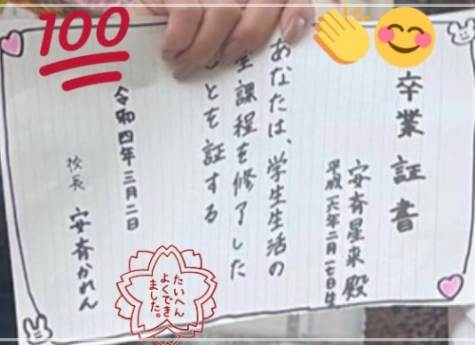 💯
👏😊
卒業証書
安斉星来 殿
平成一六年二月一七日生
あなたは、学生生活の
全課程を修了した
ことを証する
令和四年三月二日
校長 安斉かれん
たいへん
よくでき
ました。